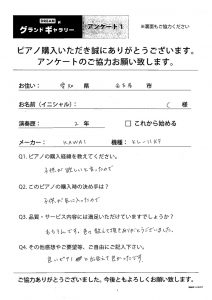 グランドギャラリー アンケート1 ※裏面もご協力ください
ピアノ購入いただき誠にありがとうございます。
アンケートのご協力お願い致します。
お住い： 愛知 県 市
お名前（イニシャル）： C 様
演奏歴： 2 年 □ これから始める
メーカー： KAWAI 機種：
Q1. ピアノ購入経緯を教えてください。
子供が欲しいと言ったので
Q2. このピアノ購入時の決め手は？
子供が気に入ったので
Q3. 品質・サービス内容には満足いただけていますでしょうか？
もちろんです。
Q4. その他感想やご要望等、ご自由にご記入下さい。
良いピアノ 出会えて良かったです
ご協力ありがとうございました。今後ともよろしくお願い致します。